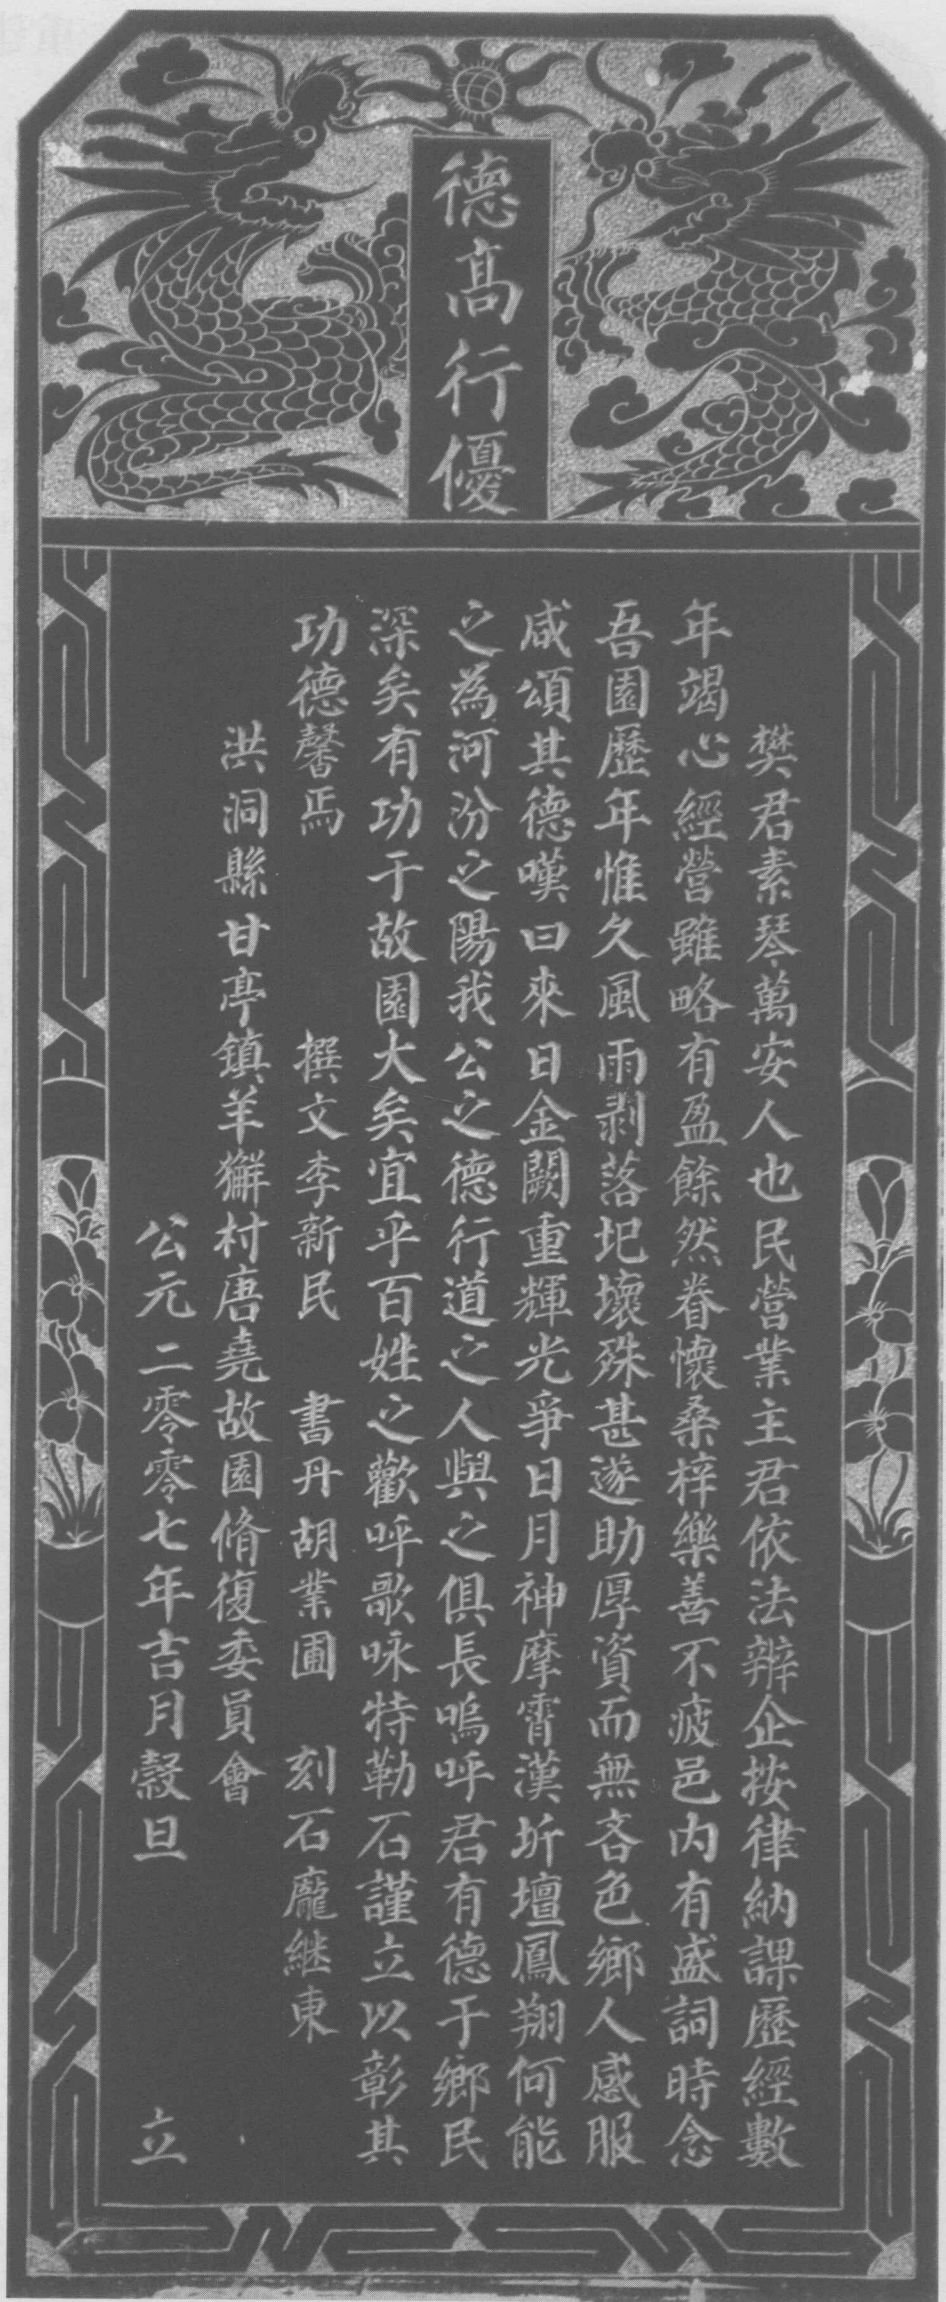 德高行優
樊君素琴萬安人也民營業主君依法辦企按律納課歷經數
年竭心經營雖略有盈餘然眷懷桑梓樂善不疲邑內有盛詞時念
吾園歷年惟久風雨剥落圮壞殊甚遂助厚資而無吝色鄉人感服
咸頌其德嘆曰來日金闕重輝光爭日月神摩霄漢圻壇鳳翔何能
之為河汾之陽我公之德行道之人與之俱長嗚呼君有德于鄉民
深矣有功于故園大矣宜乎百姓之歡呼歌咏特勒石謹立以彰其
功德馨焉 撰文李新民 書丹胡業圃 刻石龐継東
洪洞縣甘亭鎮羊獬村唐堯故園脩復委員會
公元二零零七年吉月穀旦 立